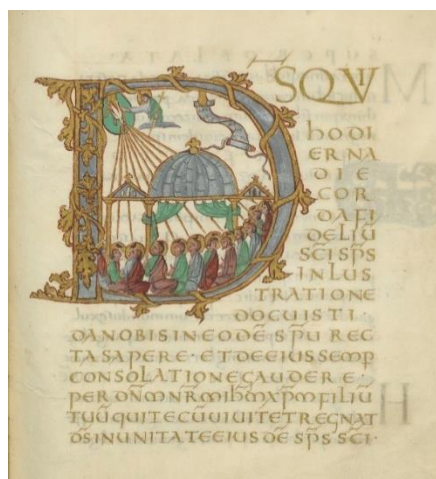 D̄S QVI
hODI
ERNA
DIE
COR
DA FI
DELIŪ
SC̄I SP̄S
INLUS
TRATIONE
DOCUISTI
DA NOBIS IN EODĒ SP̄U REC
TA SAPERE · ET DE EIUS SEMP
CONSOLATIONE GAUDERE ·
PER DN̄M NR̄M IHM̄ XP̄M FILIŪ
TUŪ QUI TECŪ UIUIT ET REGNAT
D̄S IN UNITATE EIUSDĒ SP̄S SC̄I ·